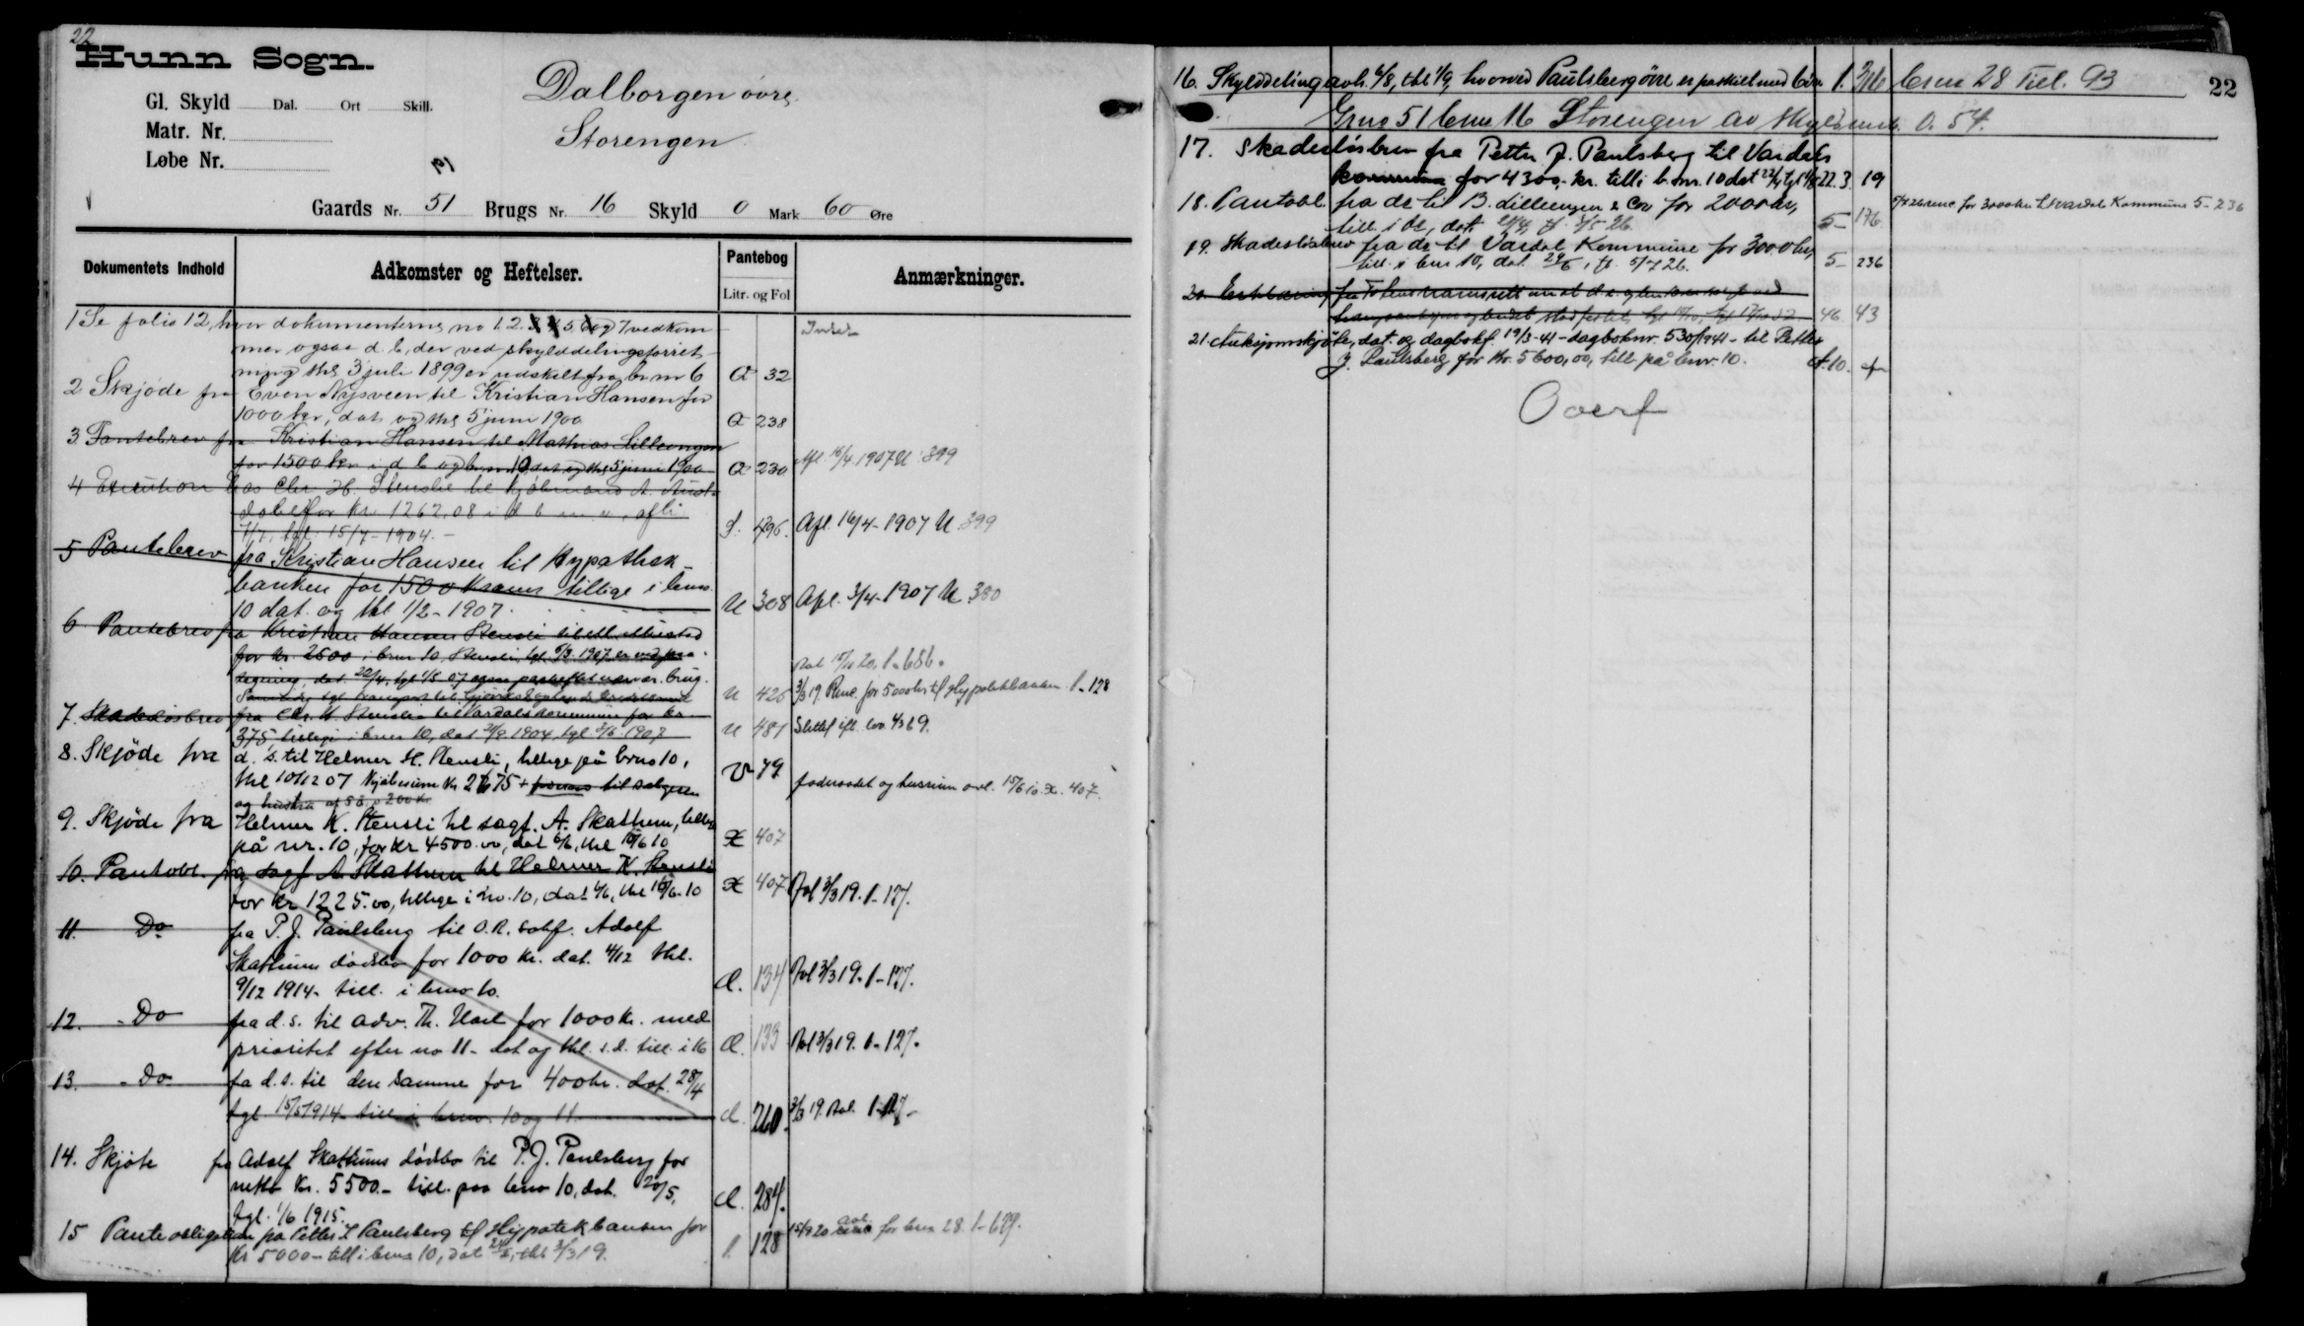 22
Hunn Sogn.
Gl. Skyld Dal. Ort Skill.
Matr. Nr.
Løbe Nr.
Dalborgen øvre
Storengen
Gaards Nr. 51 Brugs Nr. 16 Skyld 0 Mark 60 Øre
Dokumentets Indhold
Adkomster og Heftelser.
Pantebog
Litr. og Fol
Anmærkninger.
1 Se folio 12, hvor dokumenterne no 1. 2. 3 4 5 6 og 7 vedkom
mer ogsaa d. b, der ved skylddelingsforret
ning thl 3 juli 1899 er udskilt fra br nr 6 Q 32
2 Skjøde fra Even Nysveen til Kristian Hansen for
1000 kr, dat og thl 5 juni 1900 Q 238
3 Pantebrev fra Kristian Hansen til Mathias Lilleengen
for 1500 kr i d b og br nr 10 dat og thl 5 juni 1900 Q 230 Afl. 16/4 1907 U 399
4 Execution hos Chr H. Stenslie til kjøbmand A.
for kr. 1262.08 i d b
7/7, tgl. 15/7-1904. S. 496. Afl. 16/4-1907 U 399
5 Pantebrev fra Kristian Hansen til Hypothek-
banken for 1500 kroner tillige i brno
10 dat. og thl 1/2-1907. U 308 Afl. 3/4-1907 U 380
6 Pantebrev fra Kristian Hansen Stensli til
for kr. 2600 i brno 10, Stensli, tgl. 1907 er ved paa-
tegning, dat 20/4, tgl 1/5 07 ogsaa nærvær. brug.
U 426 3/3 19. Rene for 5000 kr til Hypotekbanken 1-128
7. Skadesløsbrev fra Chr. H. Stenslie til Vardals kommune for kr
375 tillige i brno 10, dat 1904, tgl 1907 U 481 Slettet ifl. lov
8. Skjøde fra d. s. til Helmer H. Stensli, tillige på brno 10,
thl 10/12 07 Kjøbesum kr 2675 + føderaad til sælgeren
og hustru af 5 å. 200 kr. V 79 føderaadet og husrum avl. 15/6 10. X. 407.
9. Skjøde fra Helmer K. Stensli til sagf. A. Skathum, tillige
på nr. 10, for kr 4500.00, dat 6/6, thl 15/6 10 X 407
10. Pantobl. fra sagf A. Skathum til Helmer K. Stensli
for kr 1225.00, tillige i no. 10, dat 6/6, thl 15/6-10 X 407 Avl 3/3 19. 1-127.
11. Do fra P. J. Paulsberg til O.R. sakf. Adolf
Skathums dødsbo for 1000 kr. dat. 4/12 thl.
9/12 1914- till. i brno 10. d. 134 Avl 3/3 19. 1-127.
12. Do fra d. s. til adv. Th. for 1000 kr. med
prioritet efter no 11- dat og thl. s.d. till. i 16 d. 133 Avl 3/3 19. 1-127.
13. Do fra d. s. til den samme for 400 kr. dat. 28/4
tgl 15/5 1914 till i brno. 10 og 11. d. 210. 3/3 19. Avl. 1-127-
14. Skjøte fra Adolf Skathums dødsbo til P. J. Paulsberg for
netto kr. 5500.- till. paa brno 10, dat. 20/5,
tgl. 1/6 1915. d. 284.
15 Panteobligation fra Petter J Paulsberg til Hypotekbanken for
kr 5000- till i brno 10, dat thl 3/3 19. 1. 128 15/9 20 avl. for brn 28. 1-629.
22
16. Skylddeling avh. 6/8, thl 1/9, hvorved Paulsberg øvre er paskilt med brn 1. 316 brnr 28 Till. 93
Grno 51 brno 16 Storengen av skyld 0.54.
17. Skadesløsbrev fra Petter J. Paulsberg til Vardals
kommune for 4300,- kr. till i b.nr. 10 dat 22. 3. 19
18. Pantobl. fra ds til B. Lilleengen & Co for 2000 kr,
till. i 10, dat 5- 176
19. Skadesløsbrev fra ds til Vardal Kommune for 3000 kr,
till. i brn 10, dat 29/6, tl. 5/7 26. 5- 236
20. Erklæring fra
46. 43
21. Auksjonsskjøte, dat. og dagbokf. 19/3-41 - dagboknr. 530/1941 - til Petter
J. Paulsberg for kr. 5600,00, till på bnr. 10. A. 10.
Overf